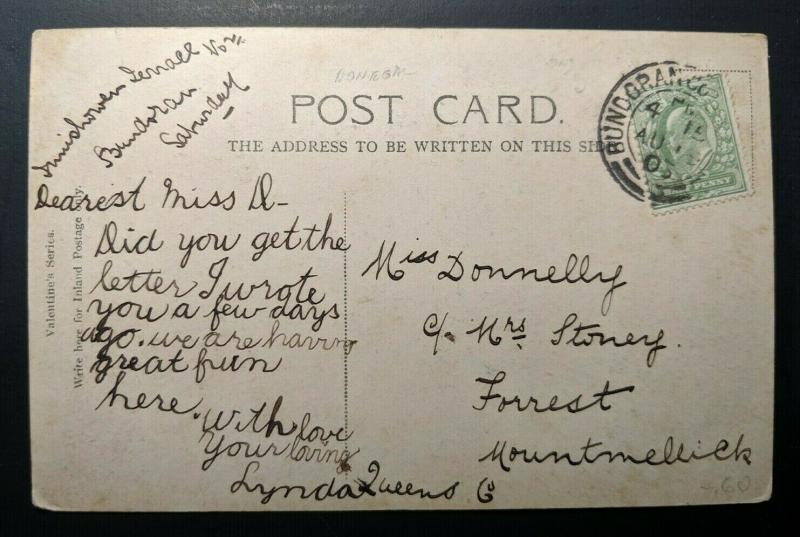 Inishowen Terrace No 11
Bundoran
Saturday
POST CARD.
THE ADDRESS TO BE WRITTEN ON THIS SIDE
BUNDORAN
AU
PENNY
Valentine's Series.
Write here for Inland Postage only.
Dearest Miss D-
Did you get the
letter I wrote
you a few days
ago. we are having
great fun
here
With love
Your loving
Lynda
Miss Donnelly
c/- Mrs Stoney.
Forrest
Mountmellick
Queens Co
.60